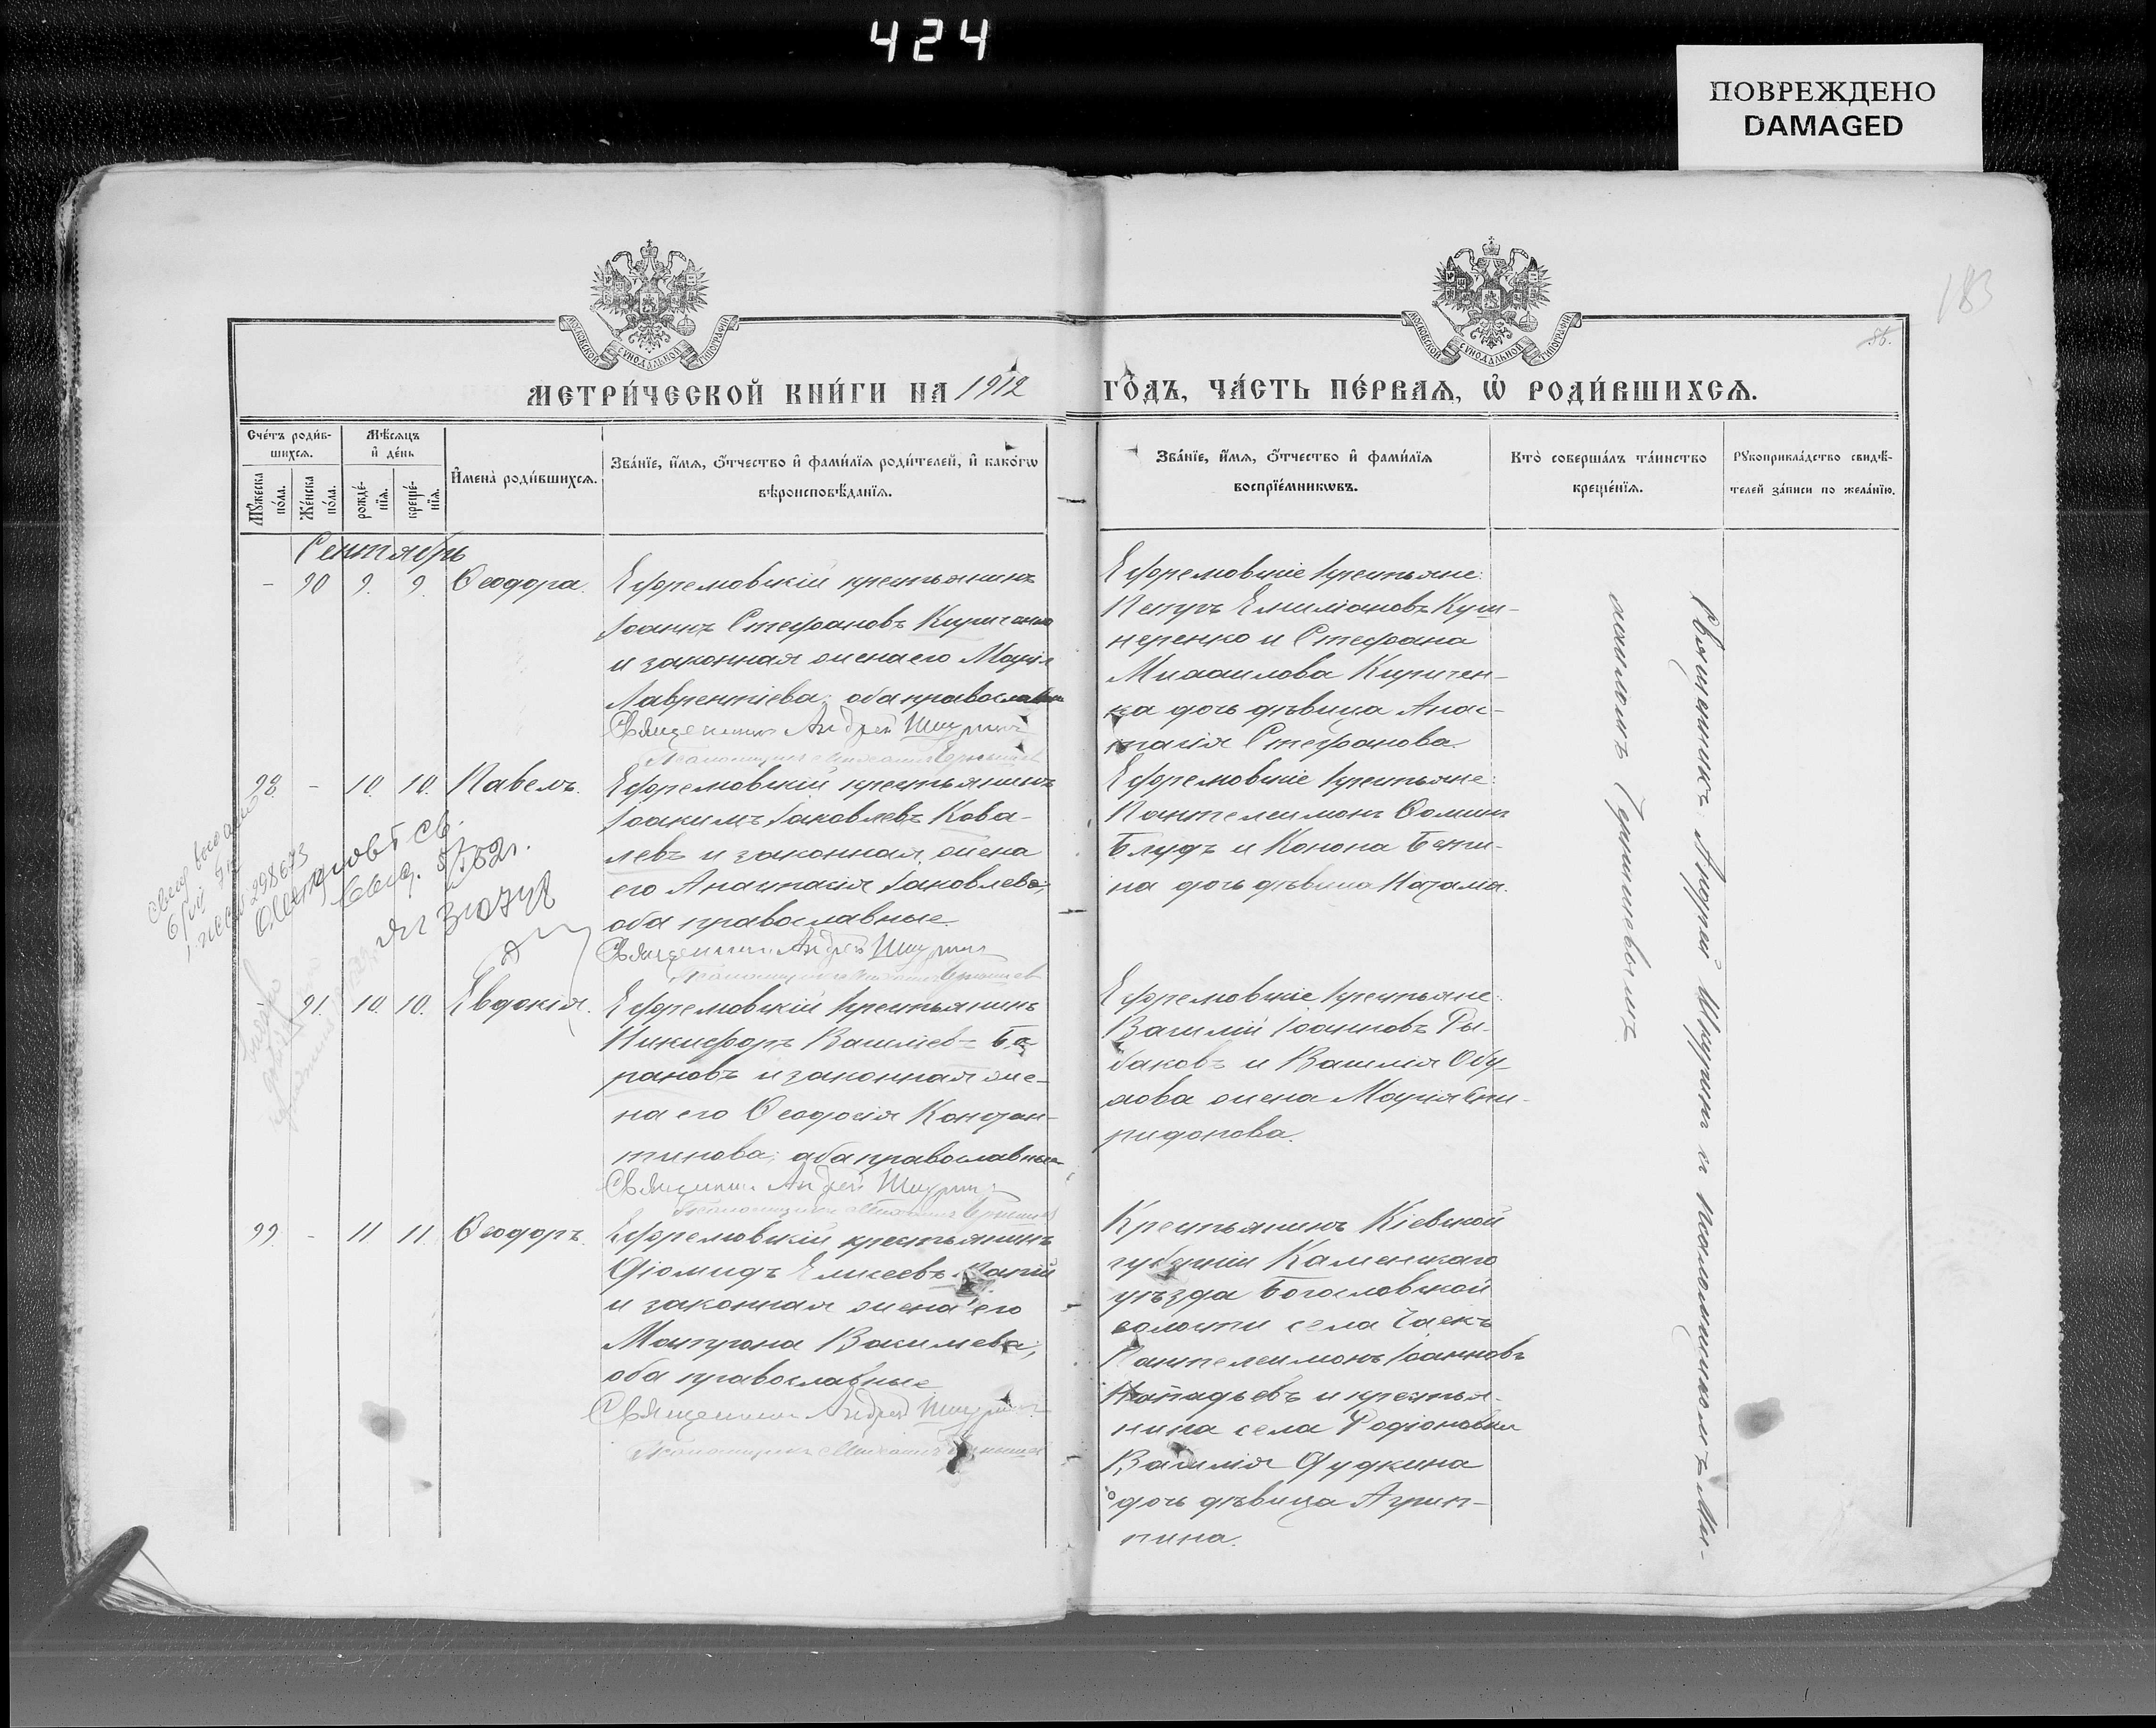 424
ПОВРЕЖДЕНО
DAMAGED
183
86.
МОСКОВСКОЙ СУНОДАЛЬНОЙ ТИПОГРАФІИ
МОСКОВСКОЙ СУНОДАЛЬНОЙ ТИПОГРАФІИ
МЕТРИ́ЧЕСКОЙ КНИ́ГИ НА 1912 ГО́ДЪ, ЧА́СТЬ ПЕ́РВАѦ, Ѡ҆ РОДИ́ВШИХСѦ.
Сче́тъ роди́в-
шихсѧ.
Мѣ́сѧцъ
и҆ де́нь
Мꙋ́жеска
по́ла.
Же́нска
по́ла.
рожде́-
нїѧ.
креще́-
нїѧ.
И҆мена̀ роди́вшихсѧ.
Зва́нїе, и҆́мѧ, ѻ҆́тчество и҆ фами́лїѧ роди́телей, и҆ како́гѡ
вѣроисповѣ́данїѧ.
Зва́нїе, и҆́мѧ, ѻ҆́тчество и҆ фами́лїѧ
воспрїе́мникѡвъ.
Кто̀ соверша́лъ та́инство
креще́нїѧ.
Рꙋкоприкла́дство свидѣ́-
телей за́писи по жела́нїю.
Сентябрь
- 90 9. 9. Ѳеодора.
Ефремовскій крестьянинъ
Іоаннъ Стефановъ Кириченко
и законная жена его Марія
Лаврентіева; оба православные
Священникъ Андрей Шкуринъ
Псаломщикъ Михаилъ Чернышев
Ефремовскіе крестьяне:
Петръ Емиліановъ Куш-
неренко и Стефана
Михаилова Киричен-
ка дочь дѣвица Анас-
тасія Стефанова.
98. - 10. 10. Павелъ.
Ефремовскій крестьянинъ
Іоакимъ Іаковлевъ Кова-
левъ и законная жена
его Анастасія Іаковлева;
оба православные
Священникъ Андрей Шкуринъ
Псаломщикъ Михаилъ Чернышев
Ефремовскіе крестьяне:
Пантелеимонъ Ѳоминъ
Блудъ и Конона
на дочь дѣвица Наталія.
298673
91. 10. 10. Евдокія.
Ефремовскій крестьянинъ
Никифоръ Василіевъ Ба-
рановъ и законная же-
на его Ѳеодосія Констан-
тинова; оба православные
Священникъ Андрей Шкуринъ
Псаломщикъ Михаилъ Чернышев
Ефремовскіе крестьяне:
Василій Іоанновъ Ры-
баковъ и Василія Обу-
хова жена Марія Спи-
ридонова.
99. - 11 11. Ѳеодоръ.
Ефремовскій крестьянинъ
Діомидъ Елисеевъ
и законная жена его
Матрона Василіева;
оба православные
Священникъ Андрей Шкуринъ
Псаломщикъ Михаилъ Чернышев
Крестьянинъ Кіевской
губерніи Каменскаго
уѣзда Богословской
волости села
Пантелеимонъ Іоанновъ
и крестья-
нина села Родіоновки
Василія Дудкина
дочь дѣвица Агрип-
пина.
Священникъ Андрей Шкуринъ и псаломщикъ Ми-
хаилъ Чернышевъ